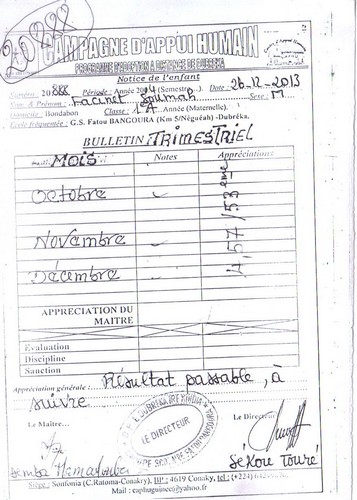 20888
CAMPAGNE D'APPUI HUMAIN
PROGRAMME D'ADOPTION A DISTANCE DE DUBREKA
Notice de l'enfant
Numéro: 20888 Période: Année (Semestre ..). Date: 26-12-2013
Nom & Prénom: Facinet Soumah Sexe: M
Domicile: Bondabon Classe: Année (Maternelle).
Ecole fréquentée: G.S. Fatou BANGOURA (Km 5/Néguéah) -Dubréka.
BULLETIN: TRIMESTRIEL
MOIS Notes Appréciations
Octobre
Novembre
Décembre
4,57 /53ème
APPRECIATION DU
MAITRE
Evaluation
Discipline
Sanction
Appréciation générale: Résultat passable, à
suivre
Le Maître... Le Directeur
LE DIRECTEUR
Sékou Touré
Siège: Sonfonia (C.Ratoma-Conakry), BP: 4619 Conakry, tel: (+224)
Mail: caphaguinee@yahoo.fr